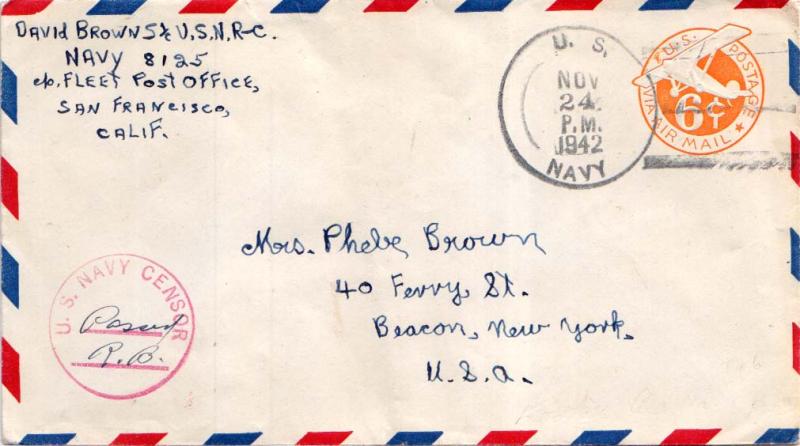 DAVID BROWN S1/c U.S.N.R-C.
NAVY 8125
c/o. FLEET POST OFFICE,
SAN FRANCISCO,
CALIF.
U. S.
NOV
24
P.M.
1942
NAVY
U.S. POSTAGE
6¢
VIA AIR MAIL
Mrs. Phebe Brown
40 Ferry St.
Beacon, New York.
U.S.A.
U. S. NAVY CENSOR
Passed
R.B.